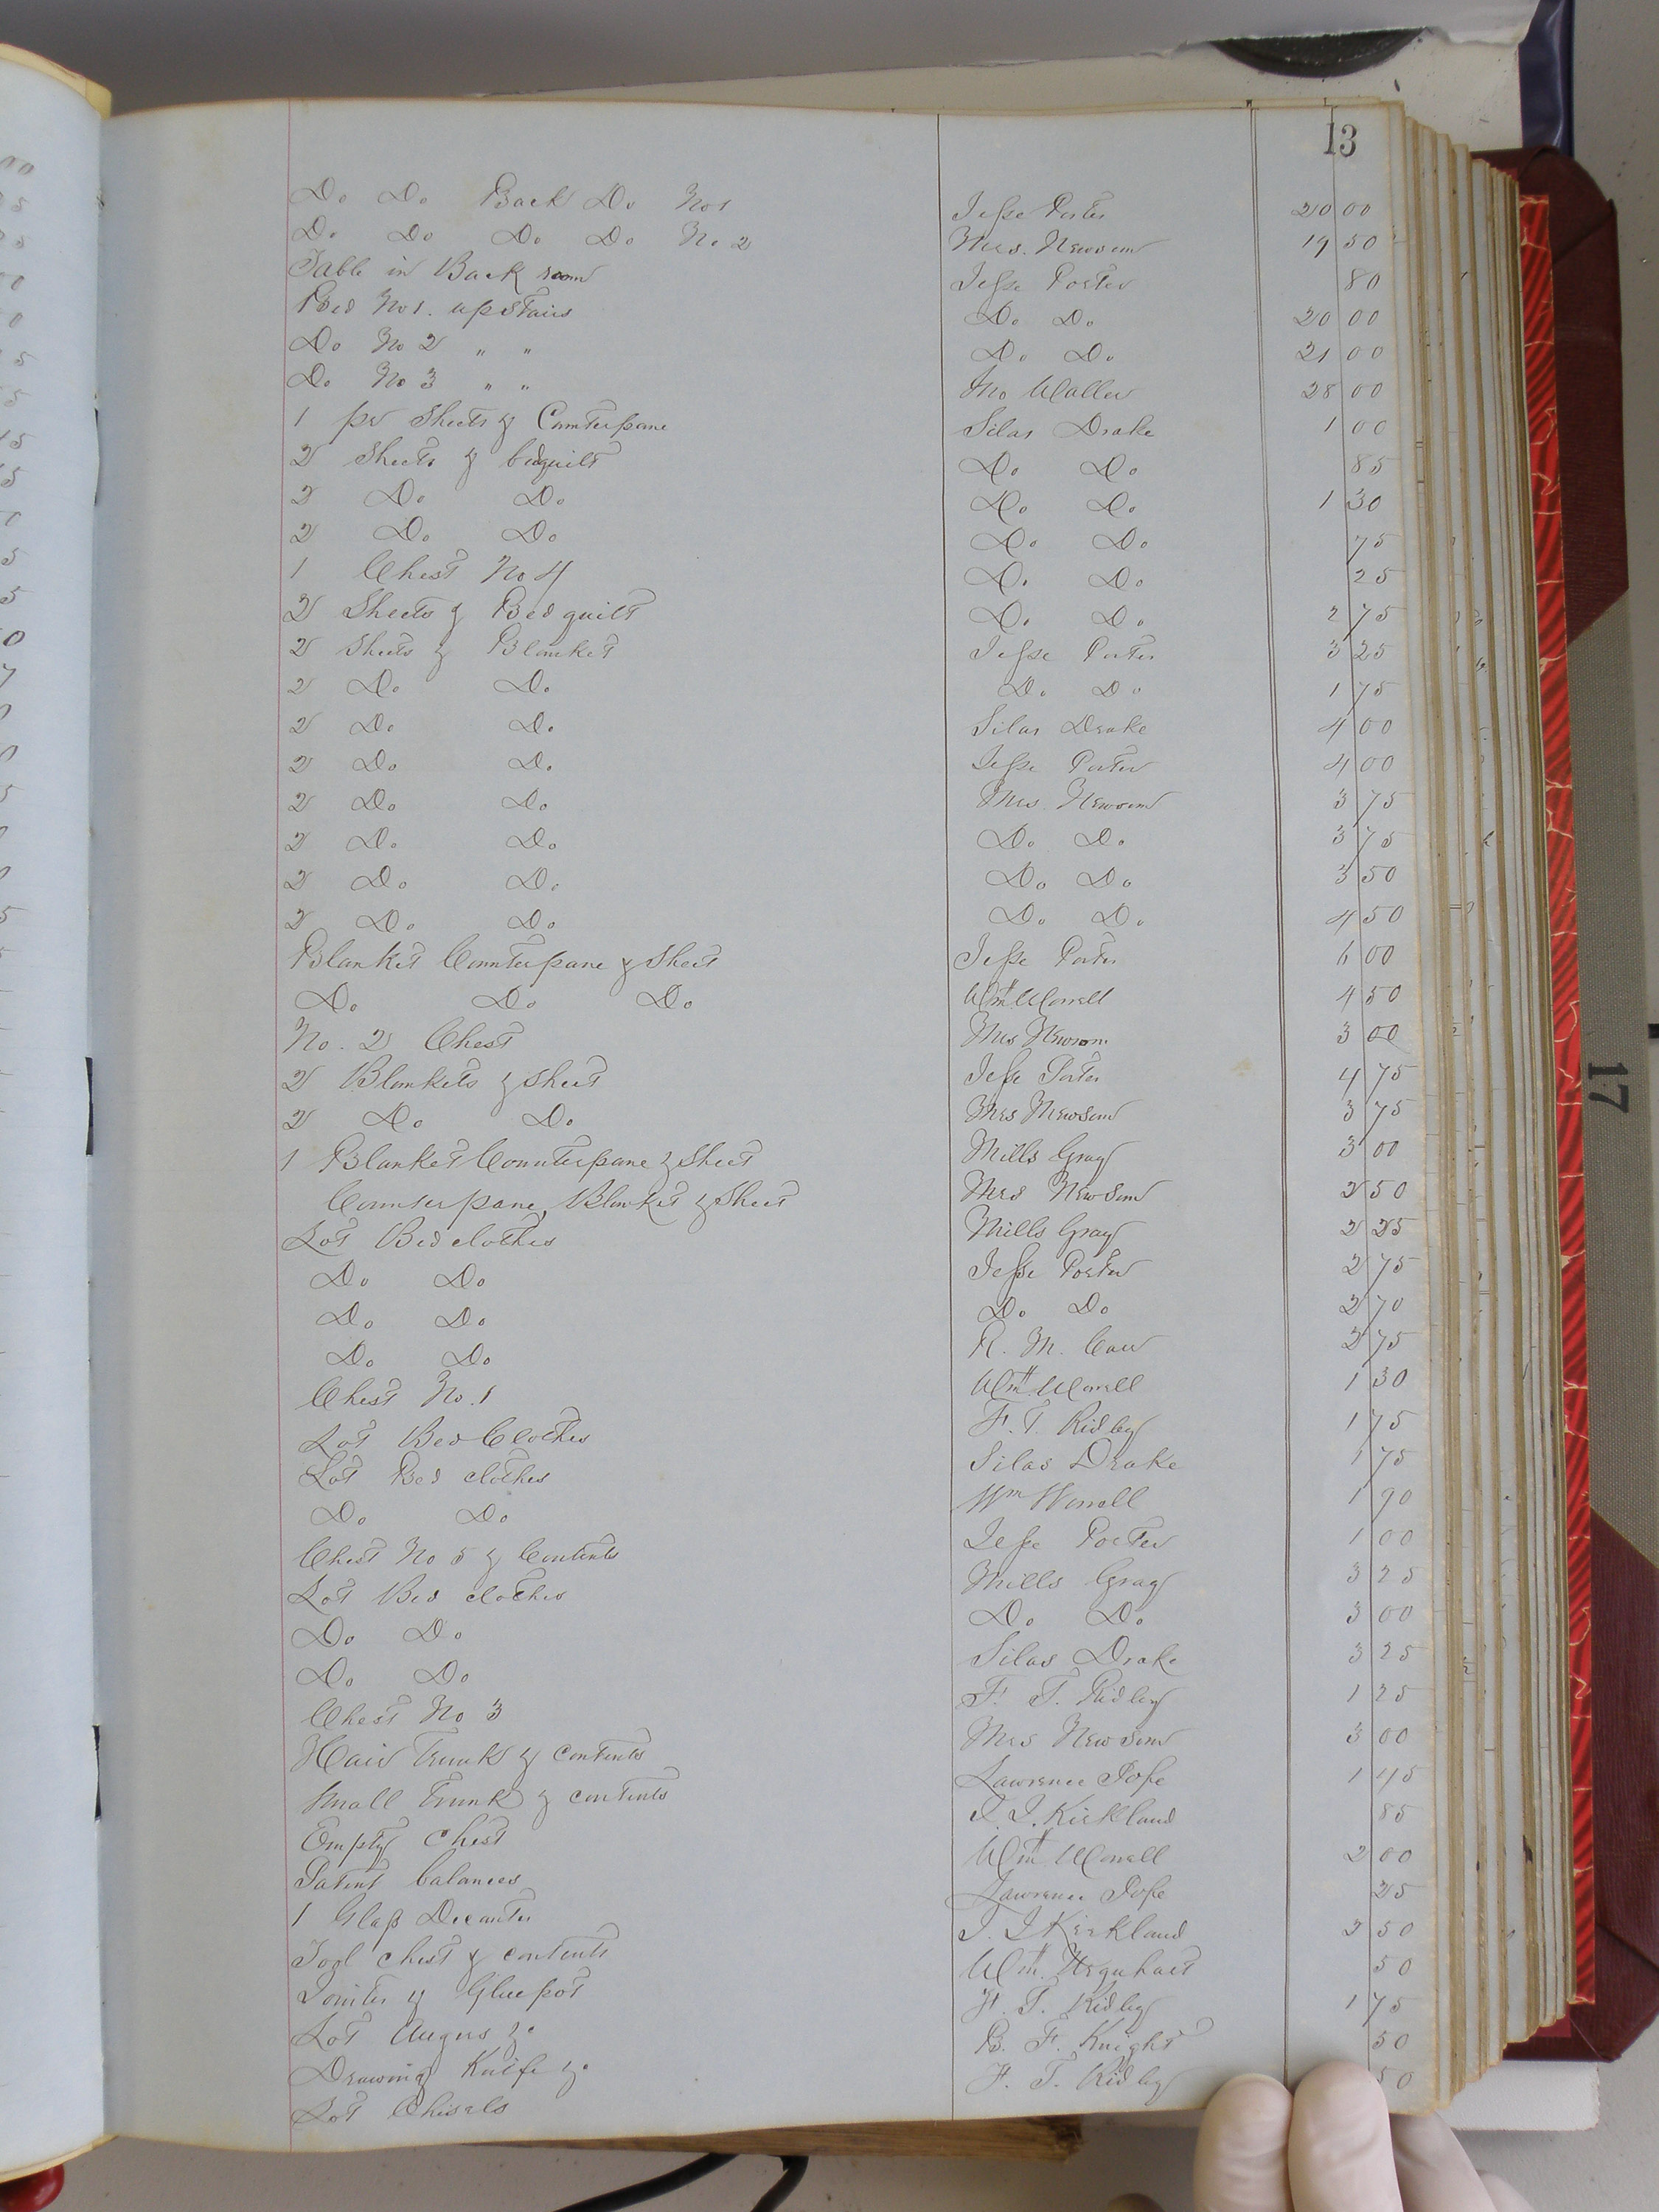 13
Do Do Back Do No 1 Jesse Porter 20 00
Do Do Do Do No. 2 Mrs. Newsom 19 50
Table in Back room Jesse Porter 80
Bed No 1. upstairs Do Do 20 00
Do No 2 " " Do Do 21 00
Do No 3 " " Jno Waller 28 00
1 pr Sheets & Counterpane Silas Drake 1 00
2 Sheets & bedquilt Do Do 85
2 Do Do Do Do 1 30
2 Do Do Do Do 75
1 Chest No 4 Do Do 25
2 Sheets & Bed quilt Do Do 2 75
2 Sheets & Blanket Jesse Porter 3 25
2 Do Do Do Do 1 75
2 Do Do Silas Drake 4 00
2 Do Do Jesse Porter 4 00
2 Do Do Mrs Newsom 3 75
2 Do Do Do Do 3 75
2 Do Do Do Do 3 50
2 Do Do Do Do 4 50
Blanket Counterpane & Sheet Jesse Porter 6 00
Do Do Do Wm Worrell 4 50
No. 2 Chest Mrs Newsom 3 00
2 Blankets & Sheet Jesse Porter 4 75
2 Do Do Mrs Newsom 3 75
1 Blanket Counterpane & Sheet Mills Gray 3 00
Counterpane, Blanket & Sheet Mrs Newsom 2 50
Lot Bed clothes Mills Gray 2 25
Do Do Jesse Porter 2 75
Do Do Do Do 2 70
Do Do R. M. 2 75
Chest No. 1 Wm Worrell 1 30
Lot Bed Clothes F. T. Ridley 1 75
Lot Bed clothes Silas Drake 1 75
Do Do Wm Worrell 1 90
Chest No 5 & Contents Jesse Porter 1 00
Lot Bed clothes Mills Gray 3 25
Do Do Do Do 3 00
Do Do Silas Drake 3 25
Chest No 3 F. T. Ridley 1 25
Hair Trunk & contents Mrs Newsom 3 00
Small Trunk & contents Lawrence Pope 1 45
Empty Chest J. J. Kirkland 85
Patent balances Wm Worrell 2 00
1 Glass Decanter Lawrence Pope 25
Tool chest & contents J. J. Kirkland 2 50
Jointer & Glue pot Wm. Urquhart 50
Lot Augurs &c F. T. Ridley 1 75
Drawing Knife &c B. F. Knight 50
Lot Chisels F. T. Ridley 50
17